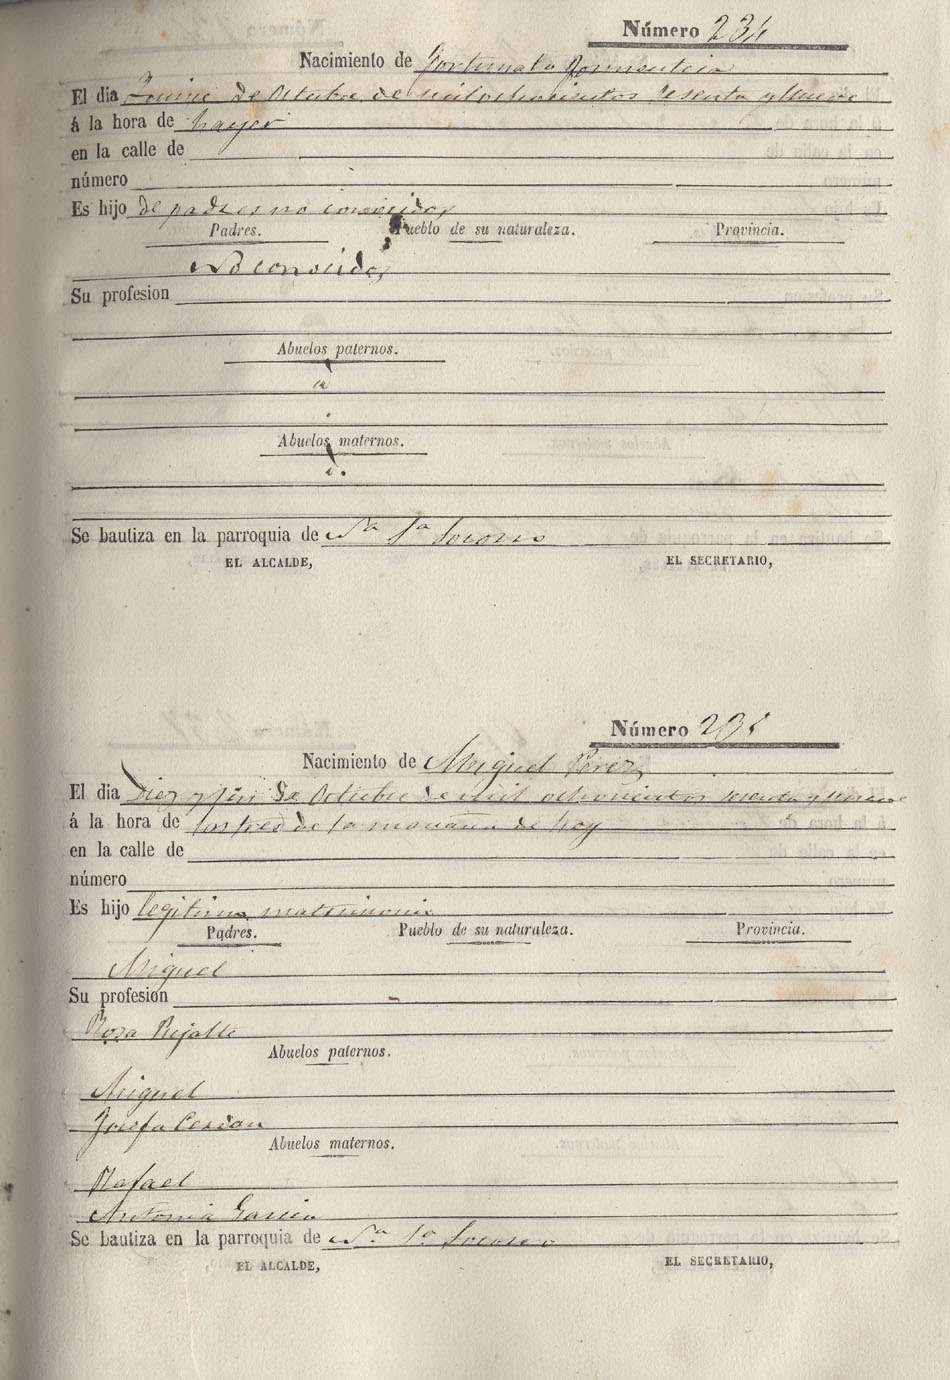 Número 234
Nacimiento de Fortunato
El dia Quinse de Octubre de mil ochocientos sesenta y nueve
á la hora de hayer
en la calle de
número
Es hijo de padres no conocidos
Padres. Pueblo de su naturaleza. Provincia.
No conocidos
Su profesion
Abuelos paternos.
Abuelos maternos.
Se bautiza en la parroquia de Nª Sª Socorro
EL ALCALDE, EL SECRETARIO,
Número 235
Nacimiento de Miguel Perez
El dia Diez y seis de Octubre de mil ochocientos sesenta y nueve
á la hora de las tres de la mañana de hoy
en la calle de
número
Es hijo legitimo matrimonio
Padres. Pueblo de su naturaleza. Provincia.
Miguel
Su profesion
Rosa
Abuelos paternos.
Miguel
Josefa
Abuelos maternos.
Rafael
Antonia Garcia
Se bautiza en la parroquia de Nª Sª Socorro
EL ALCALDE, EL SECRETARIO,